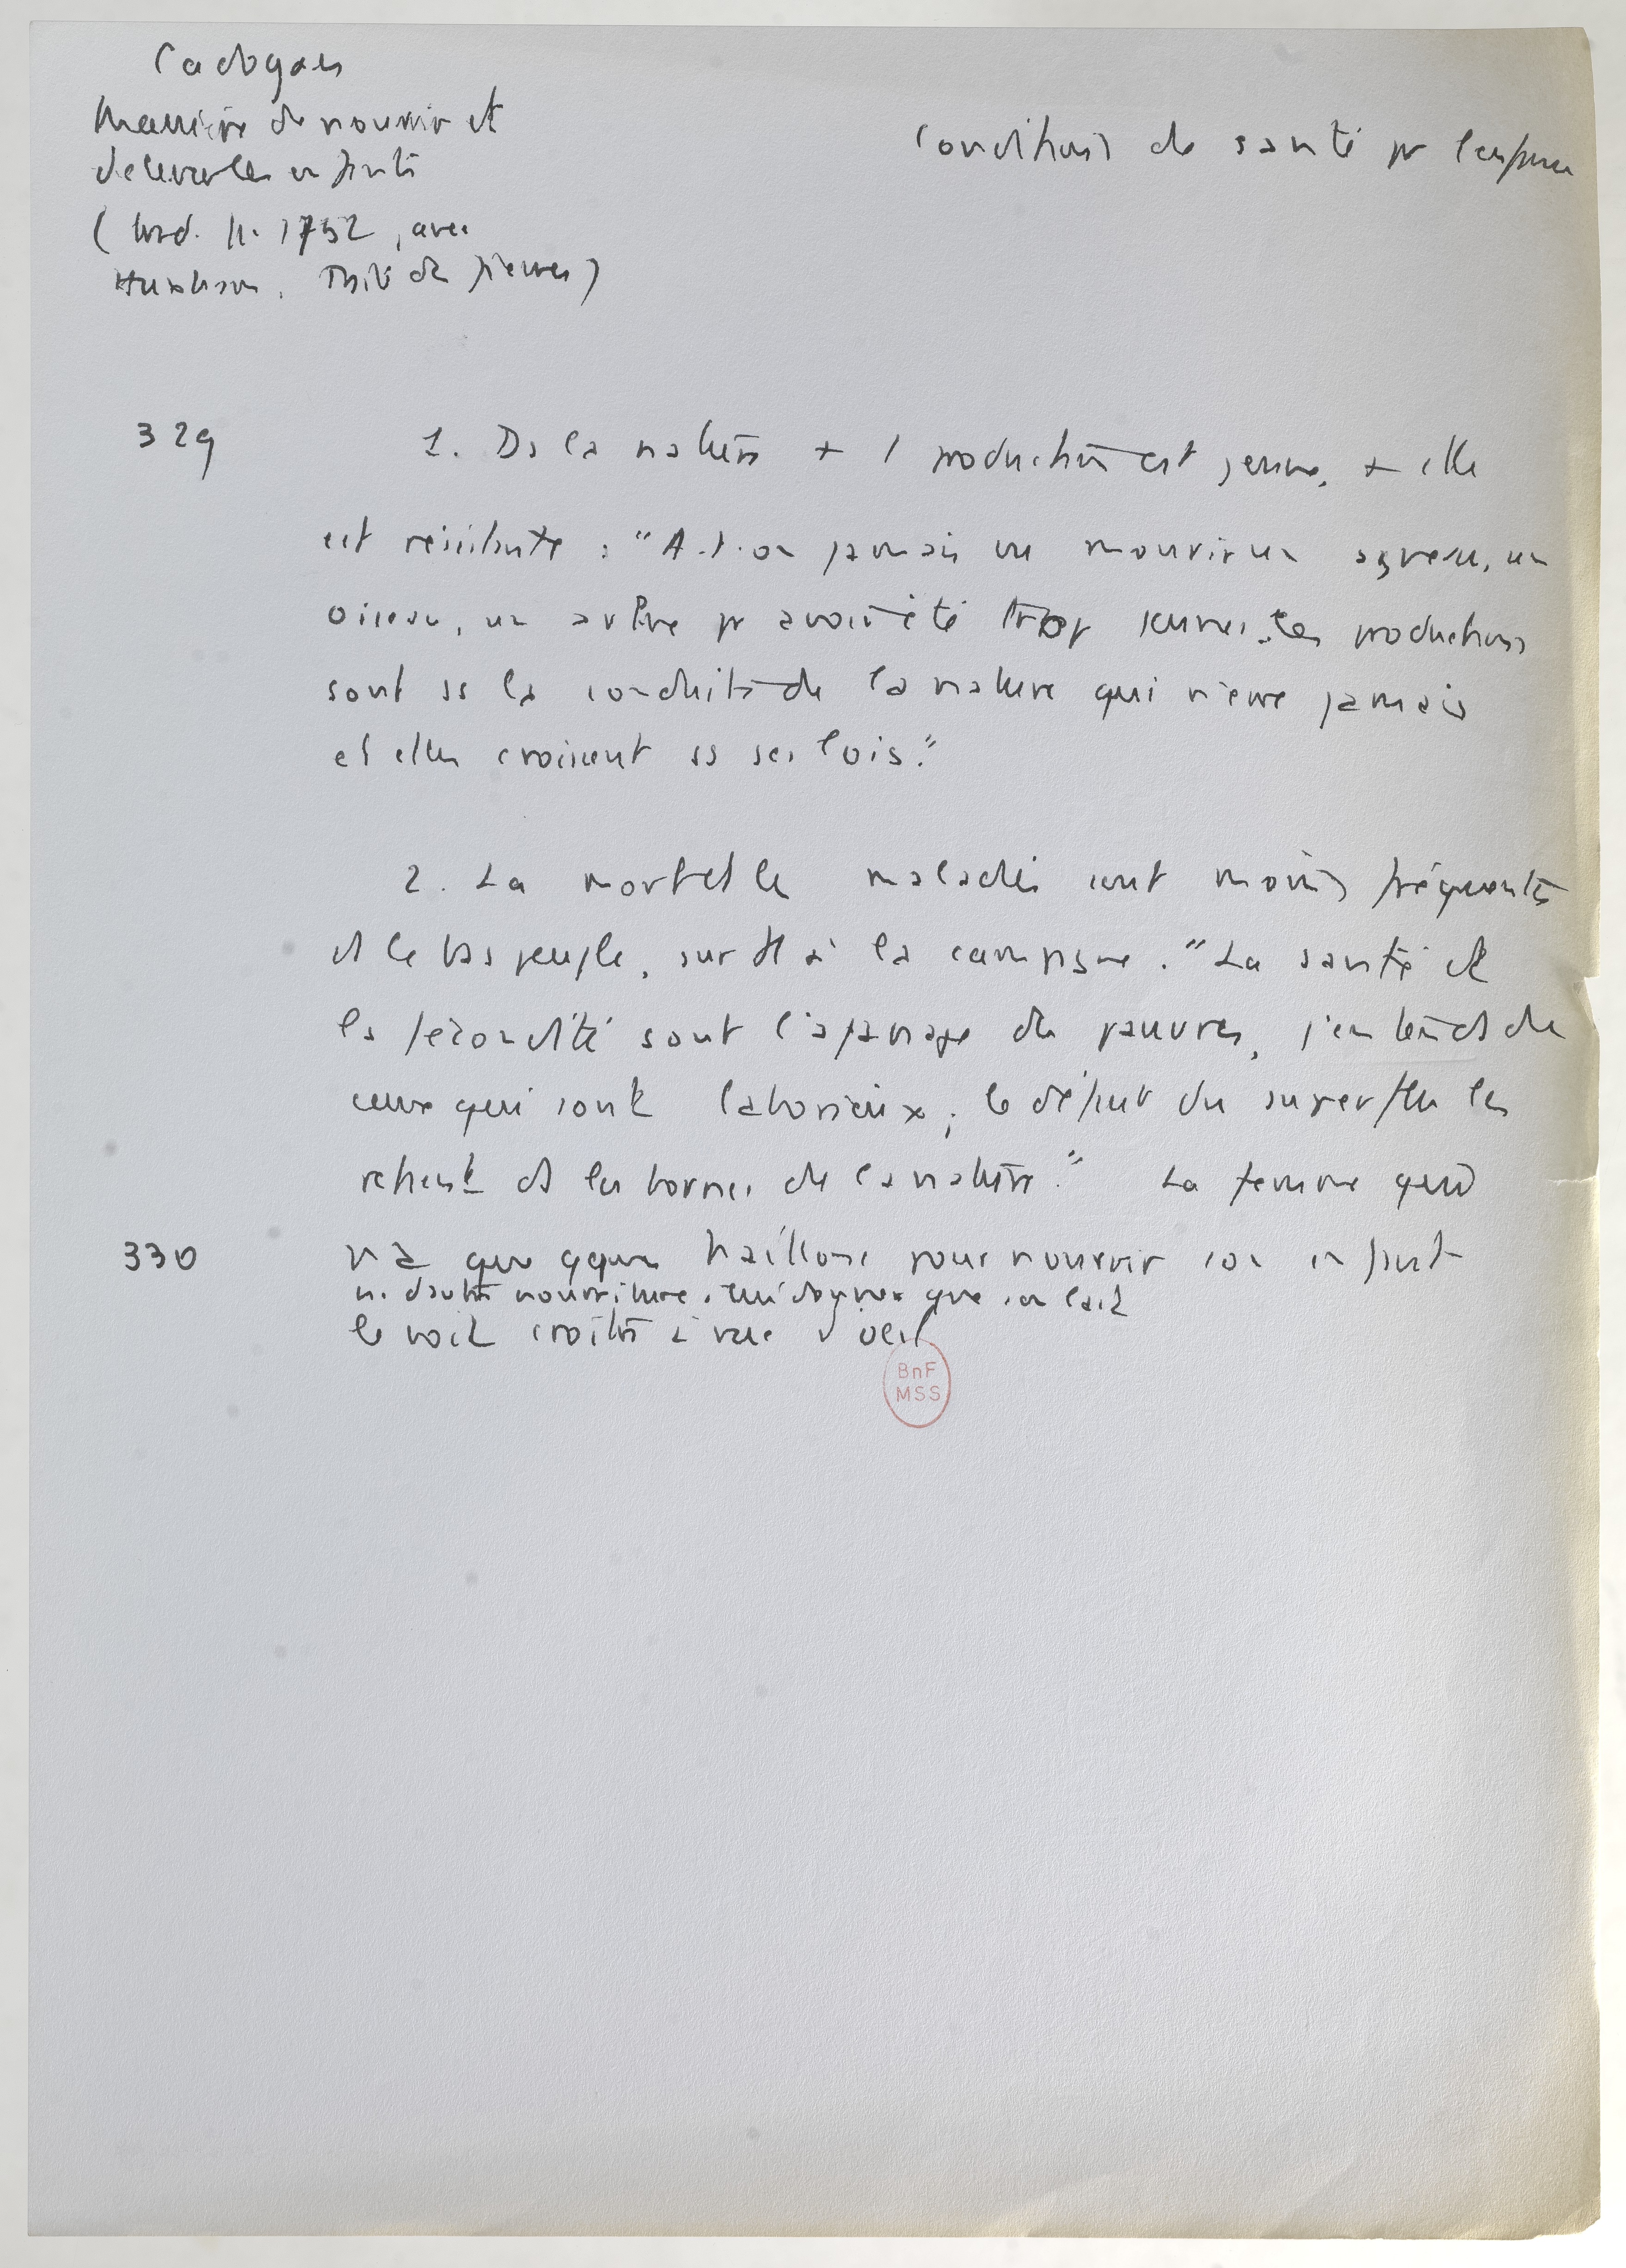 Cadogan
Manière de nourrir et
d'élever les enfants
(trad. fr. 1752, avec
Huxham. Traité des fièvres)
Conditions de santé pr l'enfance
329
1. Ds la nature + 1 production est jeune, + elle
est résistante : "A-t-on jamais vu mourir un agneau, un
oiseau, un arbre pr avoir été trop jeunes. Ces productions
sont ss la conduite de la nature qui n'erre jamais
et elles croissent ss ses lois."
2. La mort et les maladies sont moins fréquentes
ds le bas peuple, surtt à la campagne. "La santé et
la fécondité sont l'apanage des pauvres, j'entends de
ceux qui sont laborieux ; le défaut du superflu les
retient ds les bornes de la nature." La femme qui
330
n'a que qques haillons pour nourrir son enfant
ni d'autre nourriture à lui donner que son lait
le voit croître à vue d'oeil
BnF
MSS